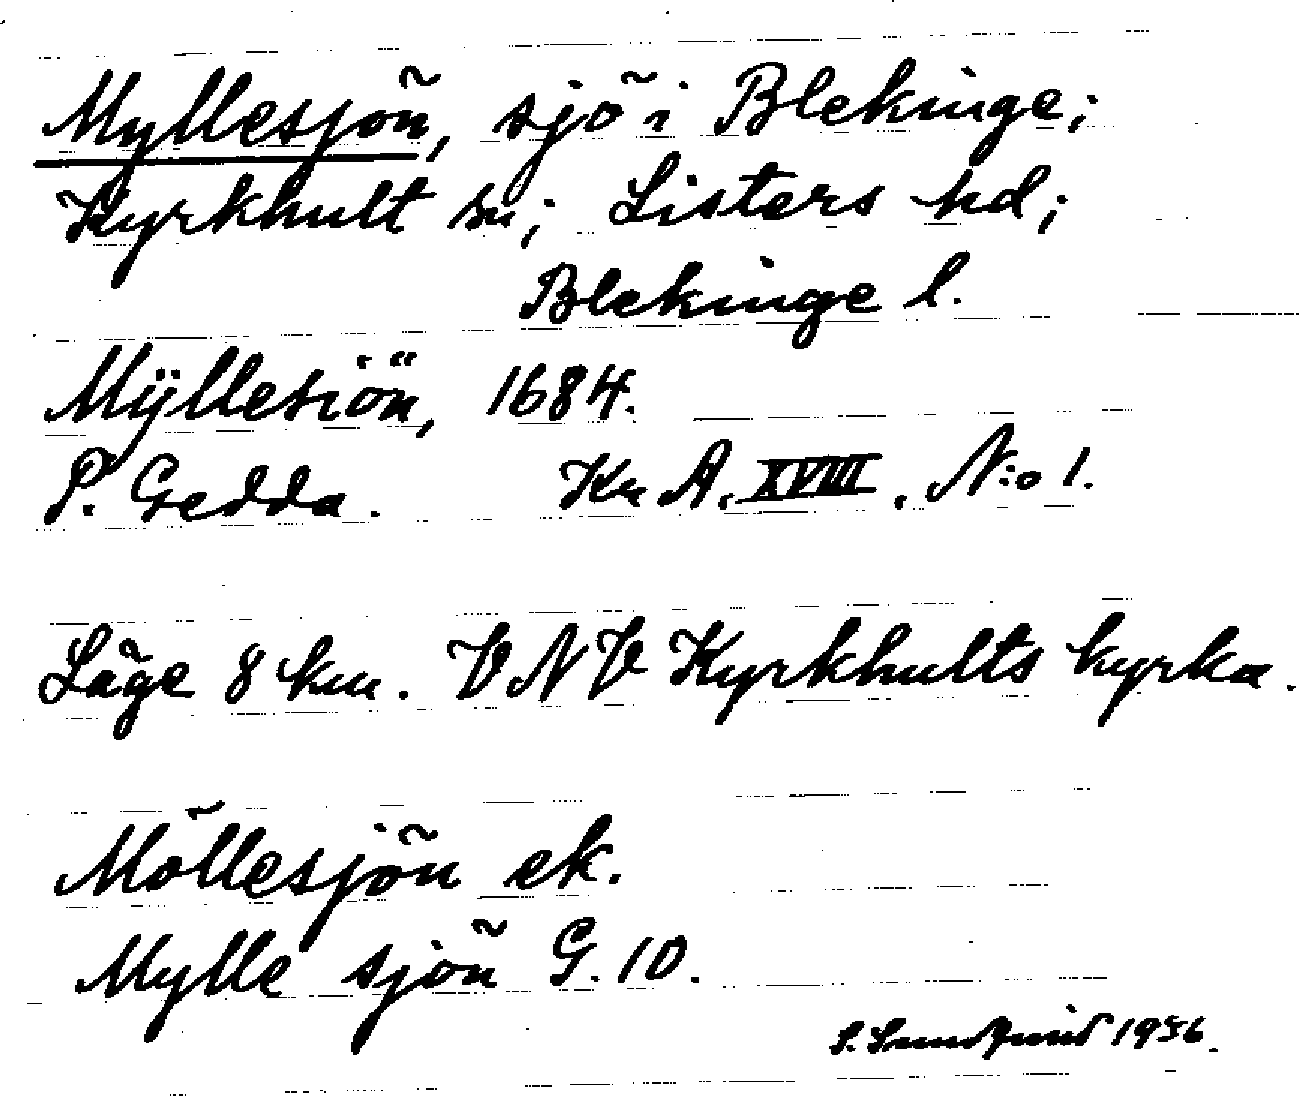 Myllesjön, sjö i Blekinge;
Kyrkhult sn; Listers hd;
Blekinge l.
Mÿllesiön, 1684.
P. Gedda. Kr A. XVIII. N:o 1.
Läge 8 km. VNV Kyrkhults kyrka.
Möllesjön ek.
Mylle sjön G. 10.
S. 1956.